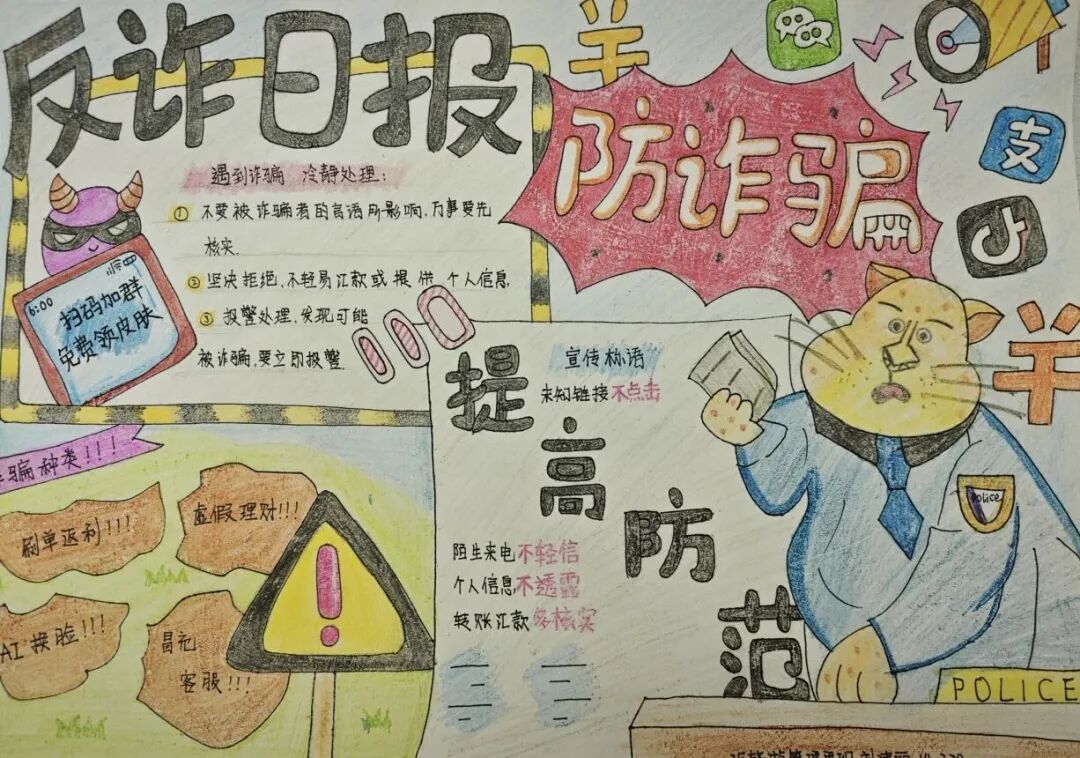 反诈日报
遇到诈骗 冷静处理:
① 不要被诈骗者的言语所影响,万事要先
核实.
② 坚决拒绝,不轻易汇款或提供个人信息
③ 报警处理,发现可能
被诈骗,要立即报警.
6:00
扫码加群
免费领皮肤
防诈骗
支
羊
羊
骗种类!!!
刷单返利!!!
虚假理财!!!
AI换脸!!!
冒充
客服!!!
!
提高防范
宣传标语
未知链接不点击
陌生来电不轻信
个人信息不透露
转账汇款多核实
Police
POLICE